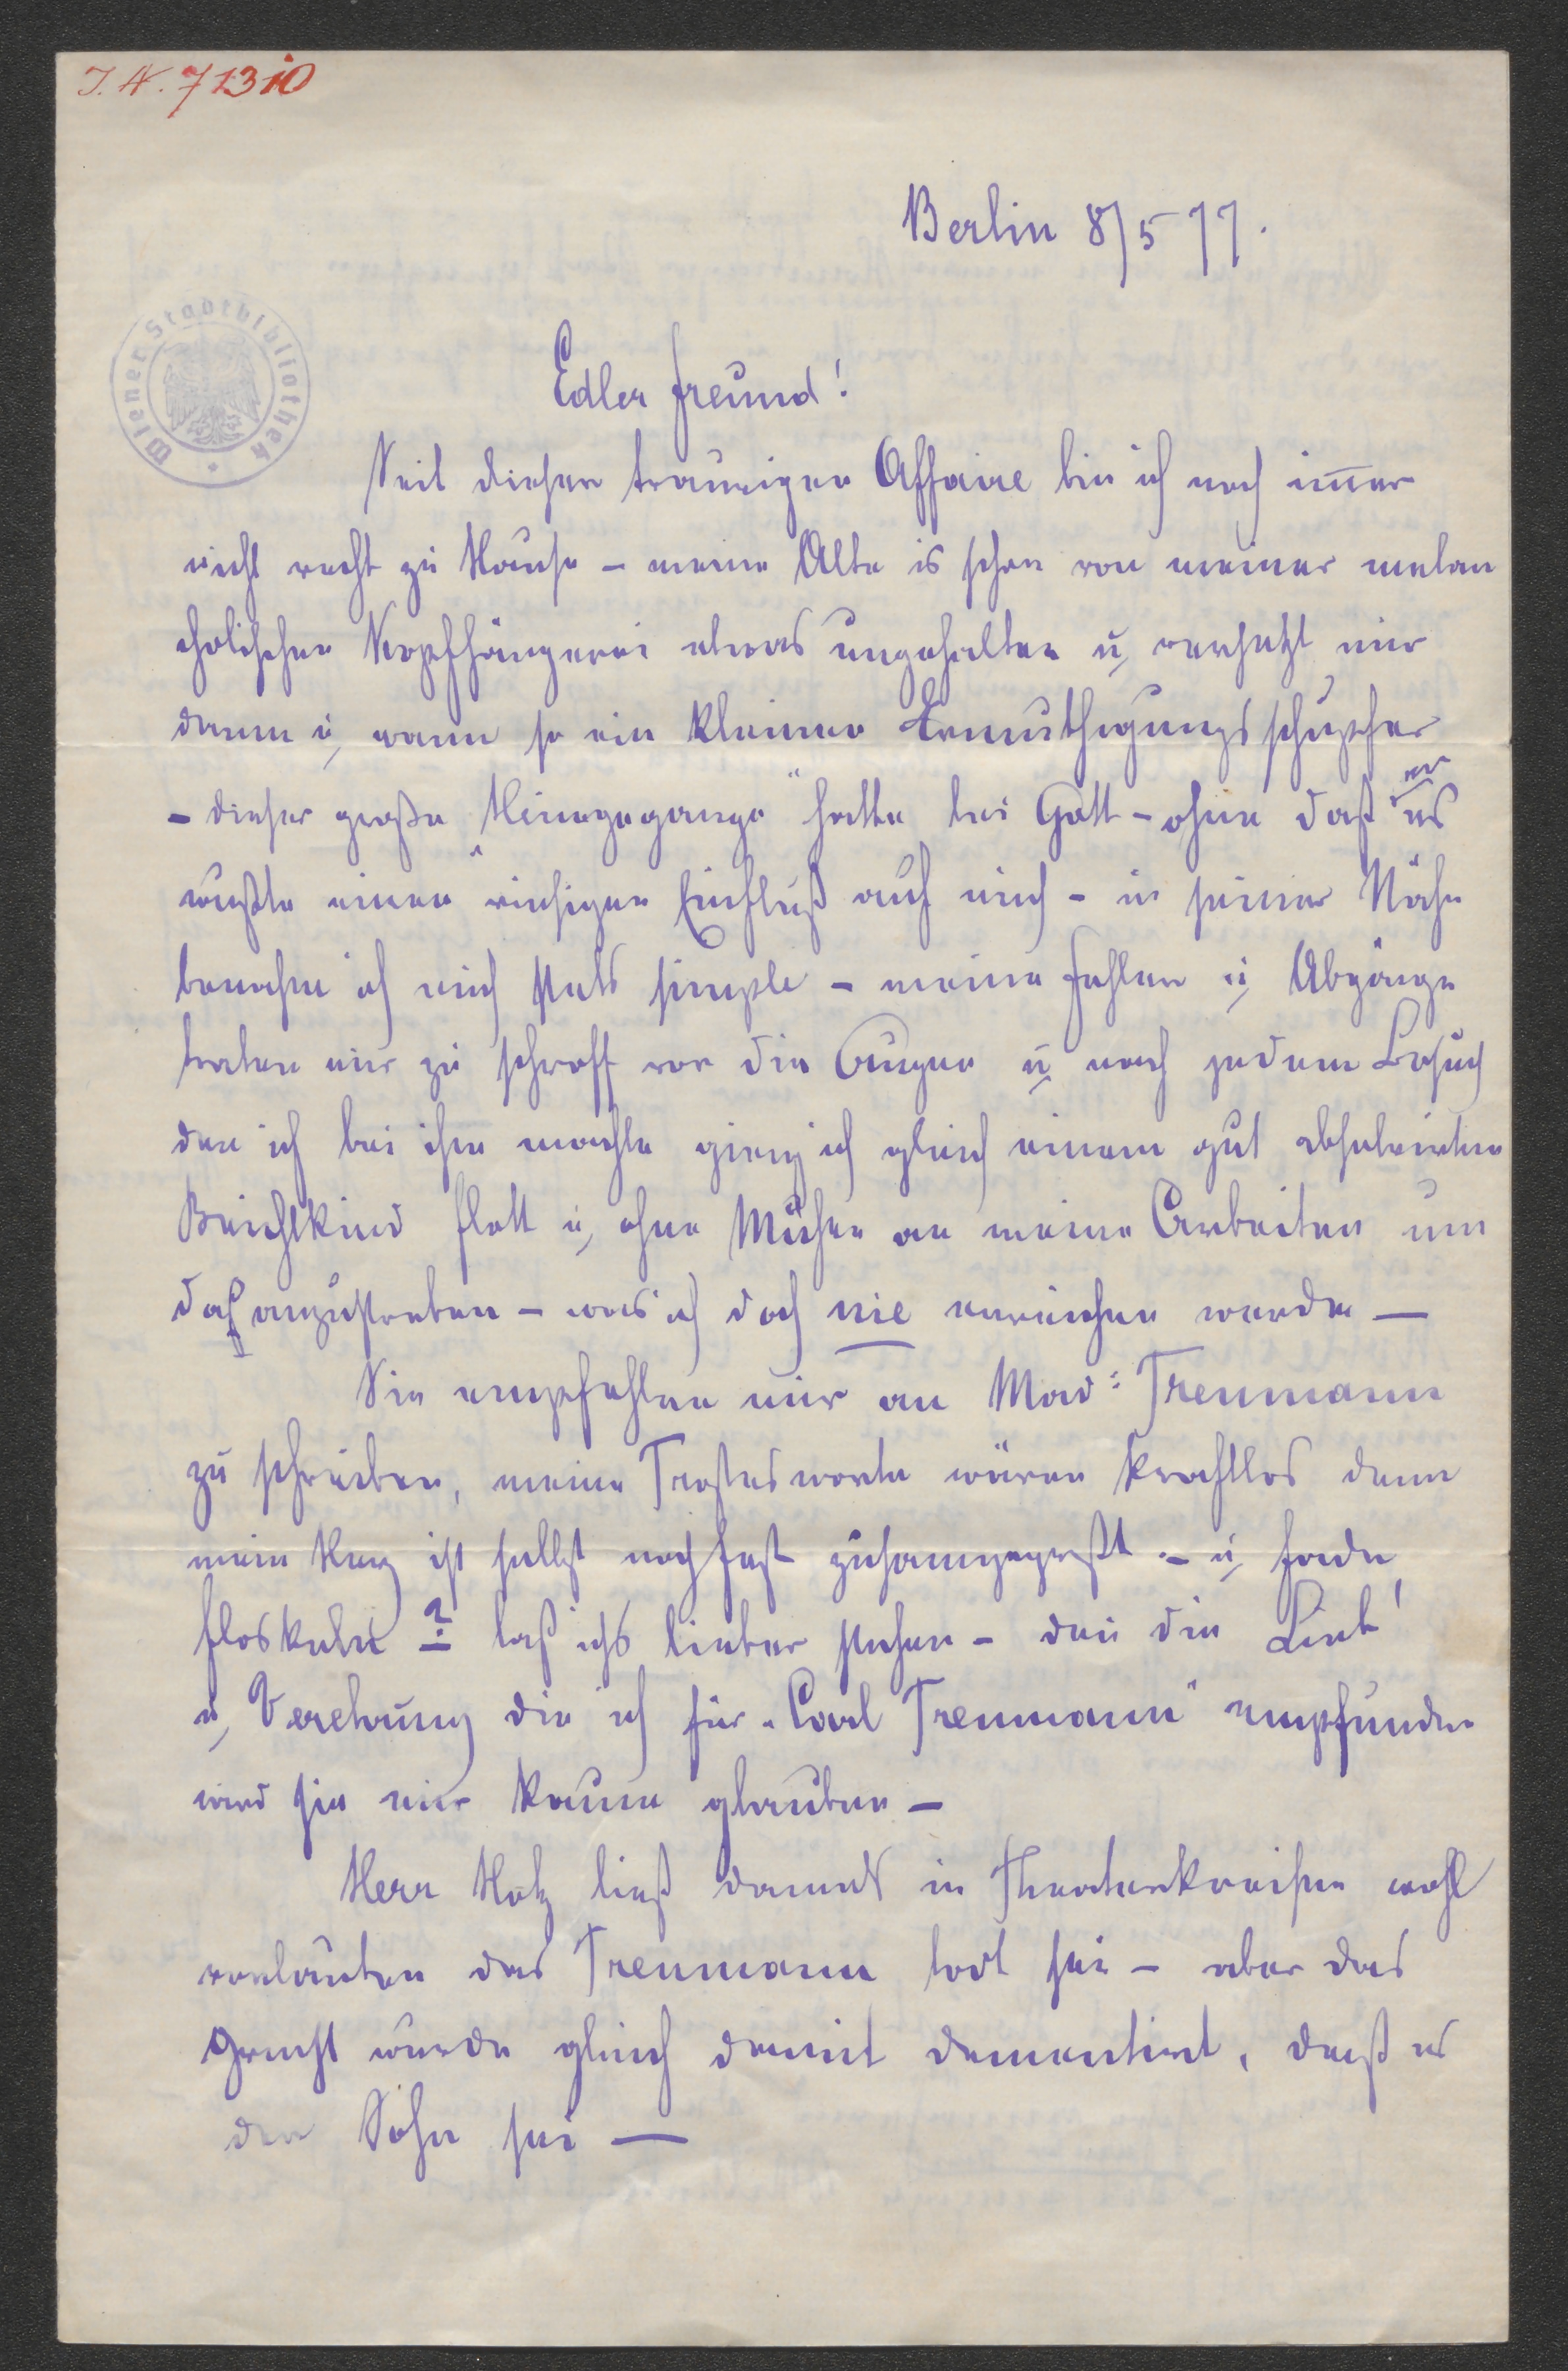 I. N. 71310
Berlin 8/5 77.
Wiener Stadtbibliothek
Edler Freund!
Seit dieser traurigen Affaire bin ich noch im̅er
nicht recht zu Hause – meine Alte is schon von meiner melan
cholischen Kopfhängerei etwas ungehalten u, versetzt mir
dann u, wann so ein kleinen Ermuthigungsschupfer
– dieser große „Heimgegange" hatte bei Gott – ohne daß er es
wußte einen riesigen Einfluß auf mich – in seiner Nähe
benahm ich mich stets simple – meine Fehler u, Abgänge
traten mir zu schroff vor die Augen u, nach jedem Besuch
den ich bei ihm machte gieng ich gleich einem gut absolvirten
Beichtkind flott u, ohne Mühen an meine Arbeiten um
daß anzustreben – was ich doch nie erreichen werde —
Sie empfehlen mir an Mad: Treumann
zu schreiben, meine Trostesworte wären kraftlos denn
mein Herz ist selbst noch fest zusamgepreßt – u, fade
Floskeln? laß ichs lieber stehen – den die Lieb'
u, Verehrung die ich für „Carl Treumann" empfunden
wird sie mir kaum glauben –
Herr Hotz ließ damals in Theaterkreisen wohl
verlauten das Treumann todt sei – aber das
Grücht wurde gleich damit dementirt, daß es
der Sohn sei —